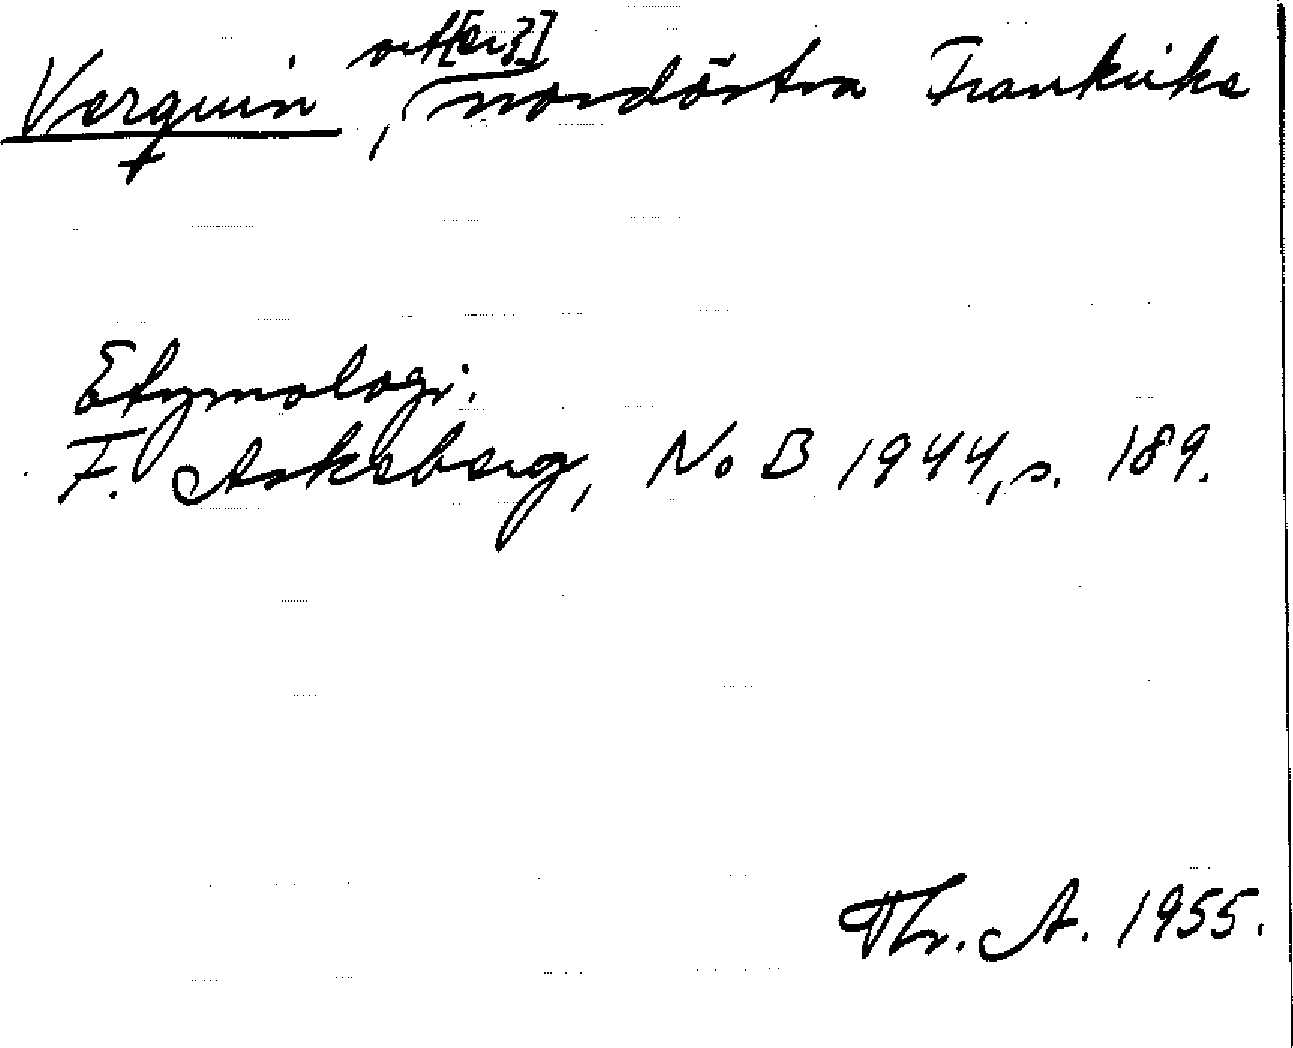 Verquin, ort[er?] nordöstra Frankrike
Etymologi.
F. Askeberg, NoB 1944, s. 189.
Th. A. 1955.